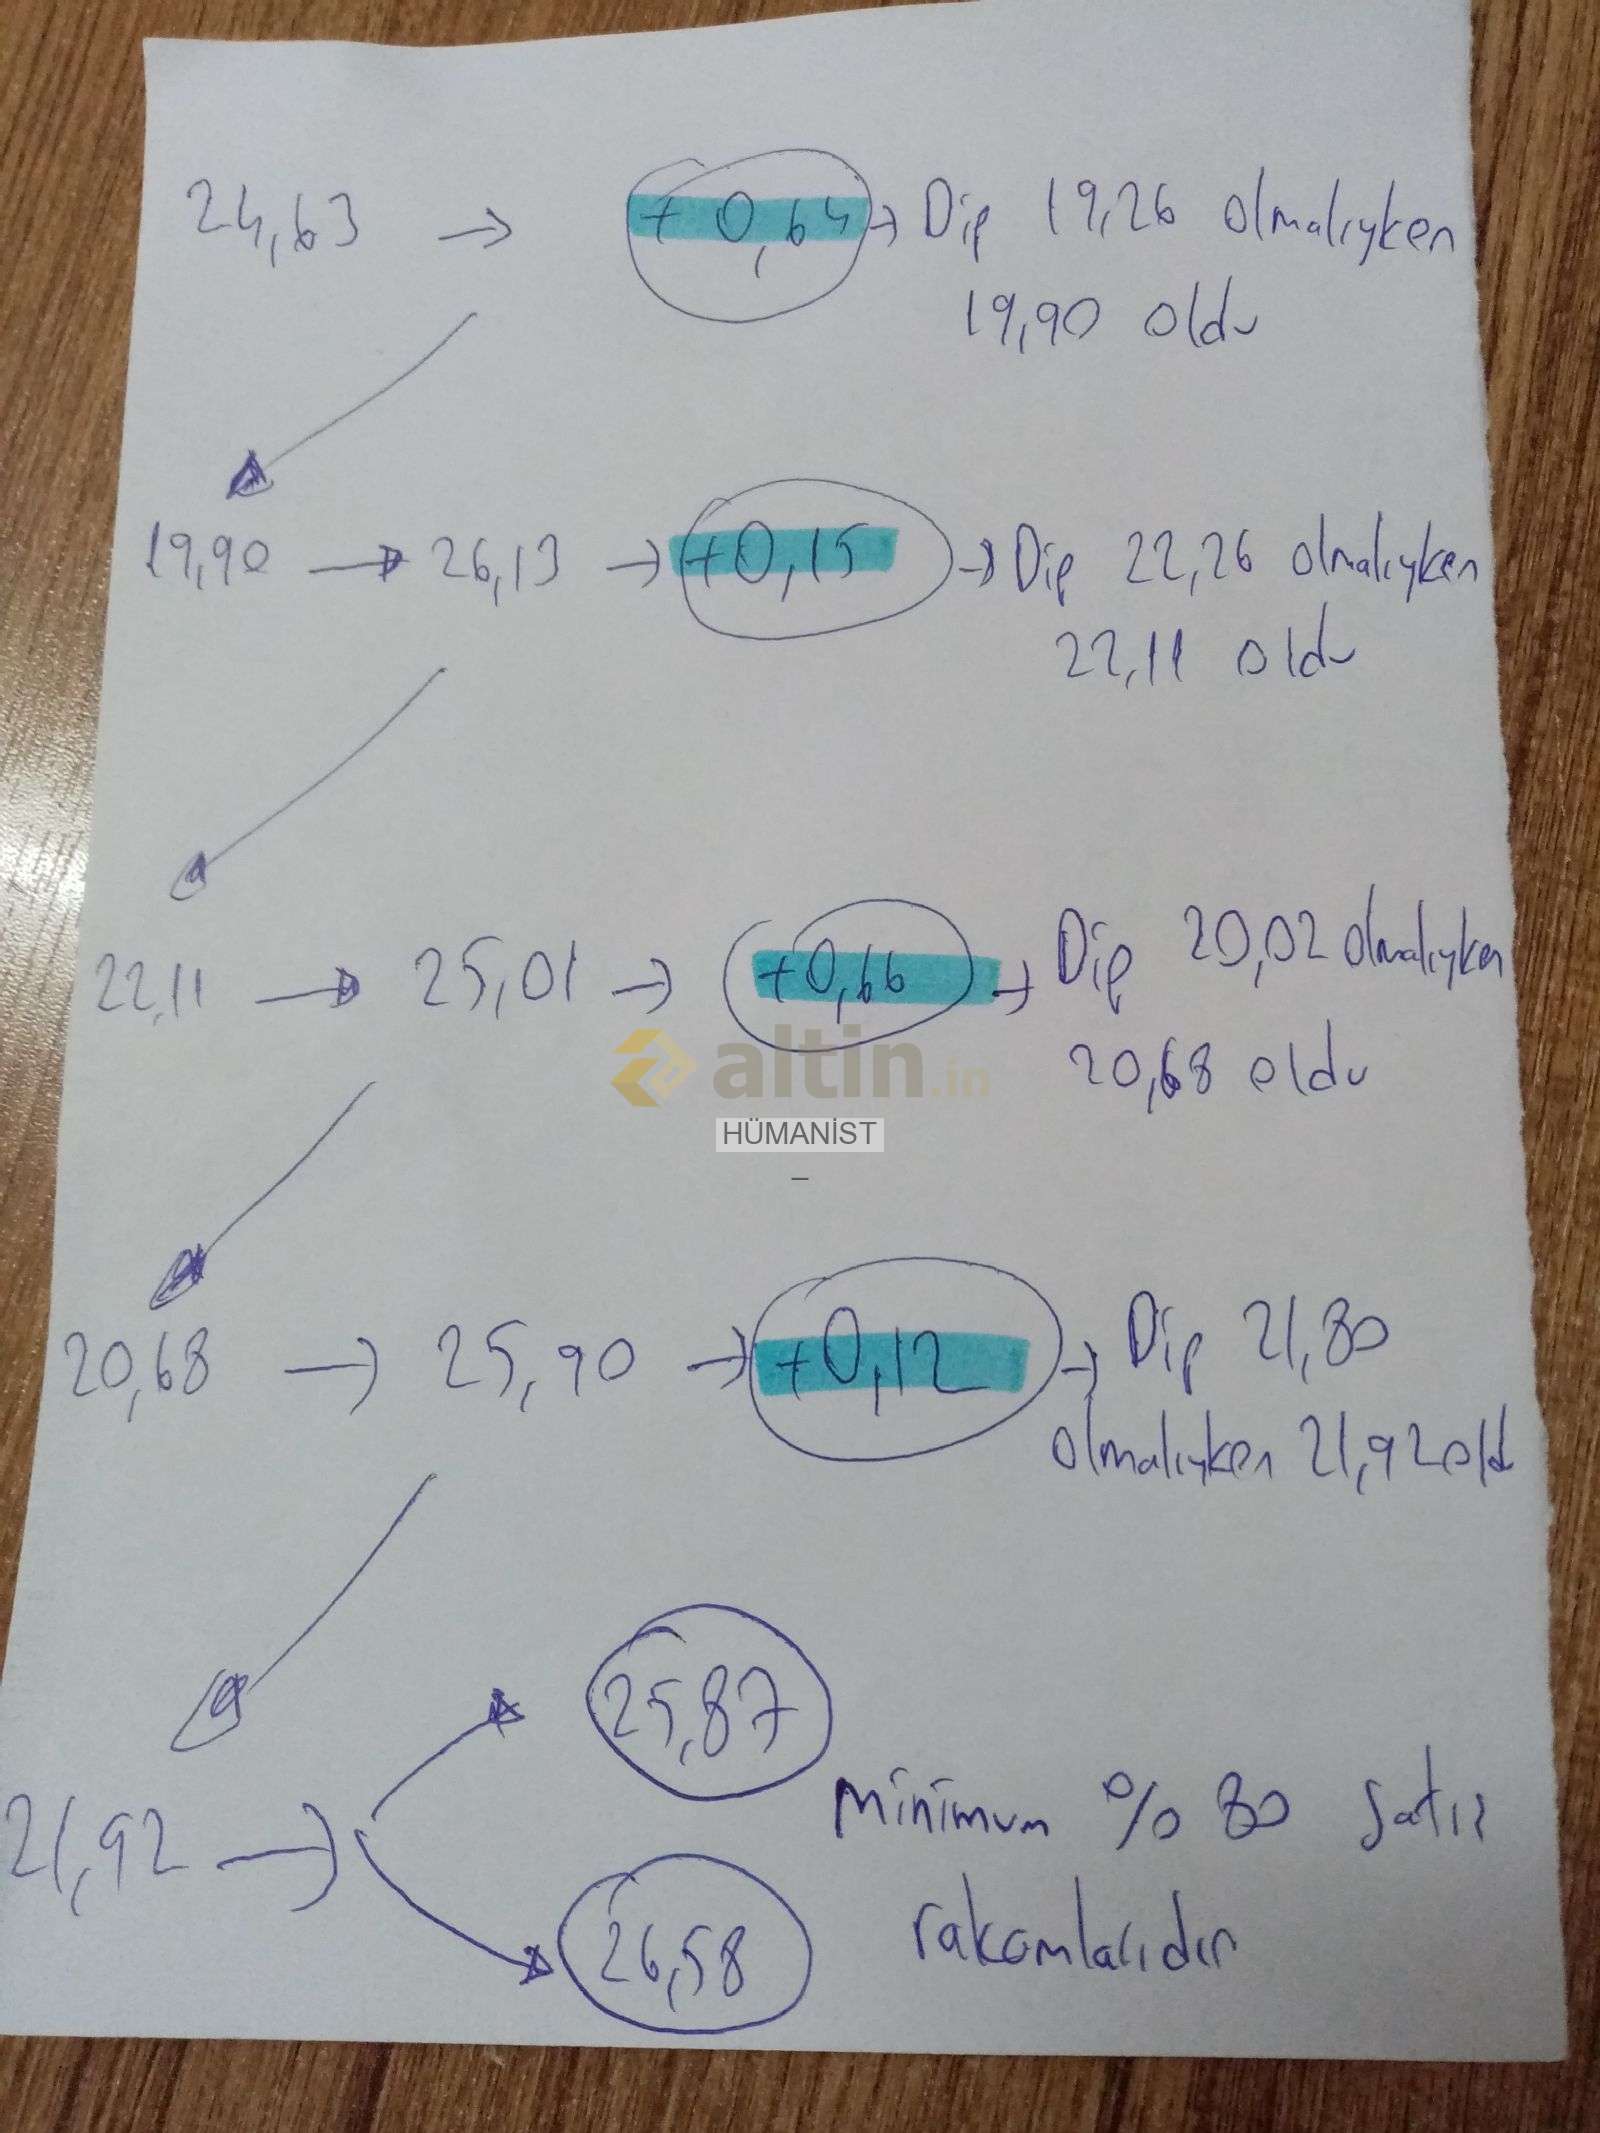 24,63 → + 0,64 → Dip 19,26 olmalıyken
19,90 oldu
19,90 → 26,13 → +0,15 → Dip 22,26 olmalıyken
22,11 oldu
22,11 → 25,01 → +0,66 → Dip 20,02 olmalıyken
20,68 oldu
altin.in
HÜMANİST
20,68 → 25,90 → +0,12 → Dip 21,80
olmalıyken 21,92 old
25,87
21,92 → minimum % 80 satış
rakamlarıdır
26,58